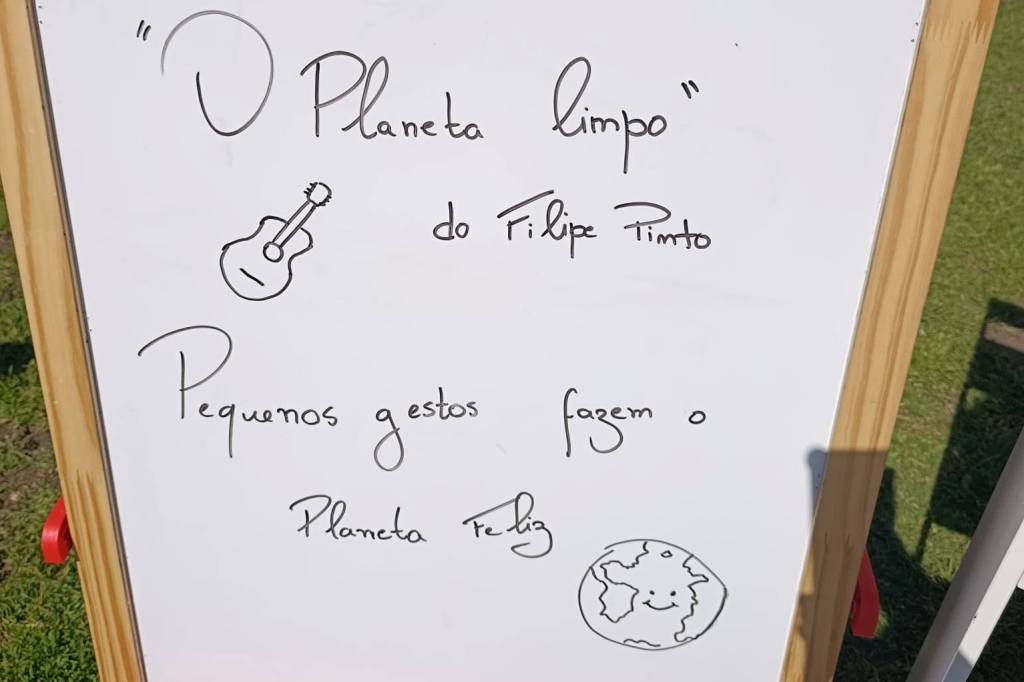 "O Planeta limpo"
do Filipe Pinto
Pequenos gestos fazem o
Planeta Feliz